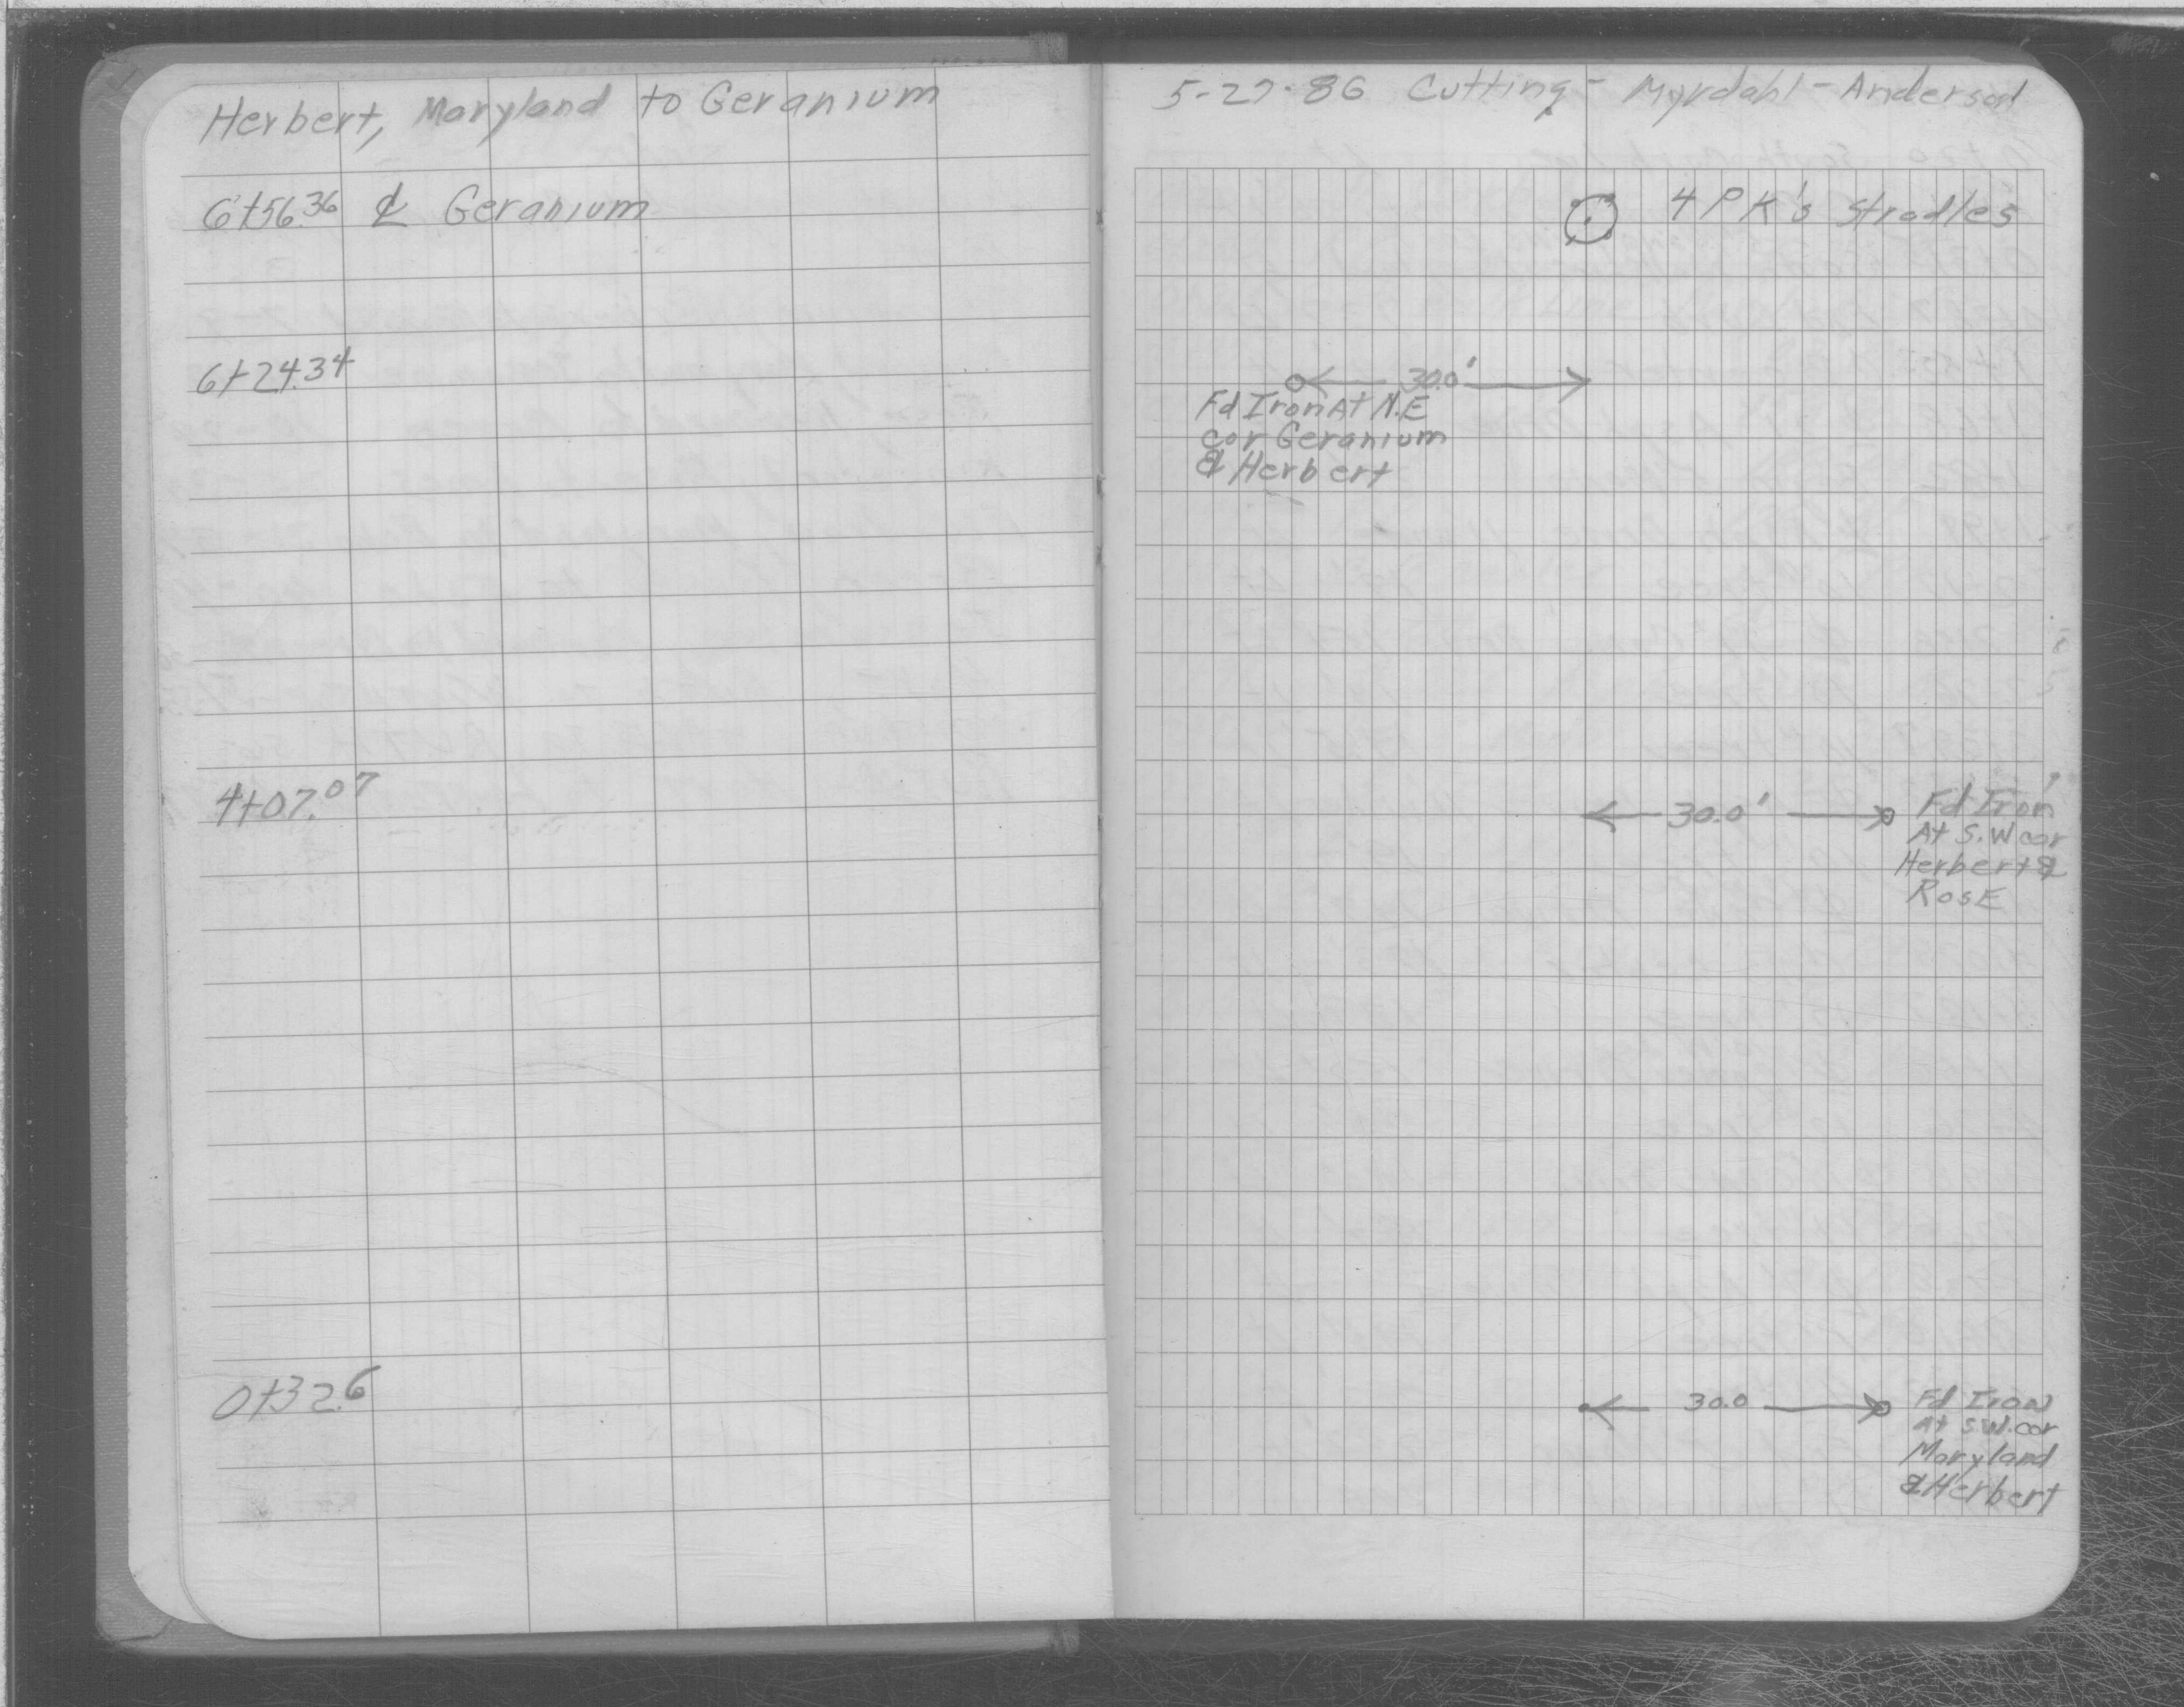 Herbert, Maryland to Geranium
6+56.36 ℄ Geranium
6+24.34
4+07.07
0+32.6
5-27-86 Cutting - Myrdahl - Anderson
4 PK's Stradles
30.0'
Fd Iron At N.E
cor Geranium
& Herbert
30.0'
Fd Iron
At S.W cor
Herbert &
RosE
30.0
Fd Iron
At S.W. cor
Maryland
& Herbert